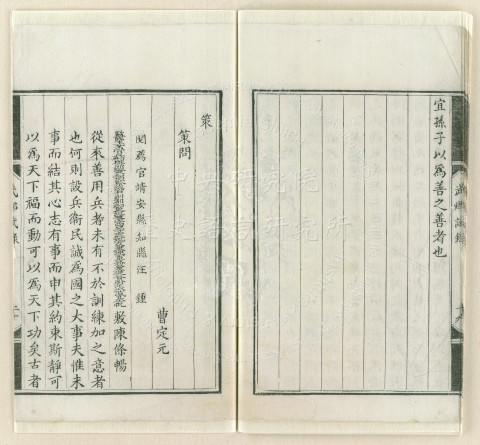 宜孫子以爲善之善者也
策
策問
曹定元
閱薦官靖安縣知縣汪鍾
敷陳條暢
從來善用兵者未有不於訓練加之意者
也何則設兵衞民誠爲國之大事夫惟未
事而結其心志有事而申其約束斯靜可
以爲天下福而動可以爲天下功矣古者